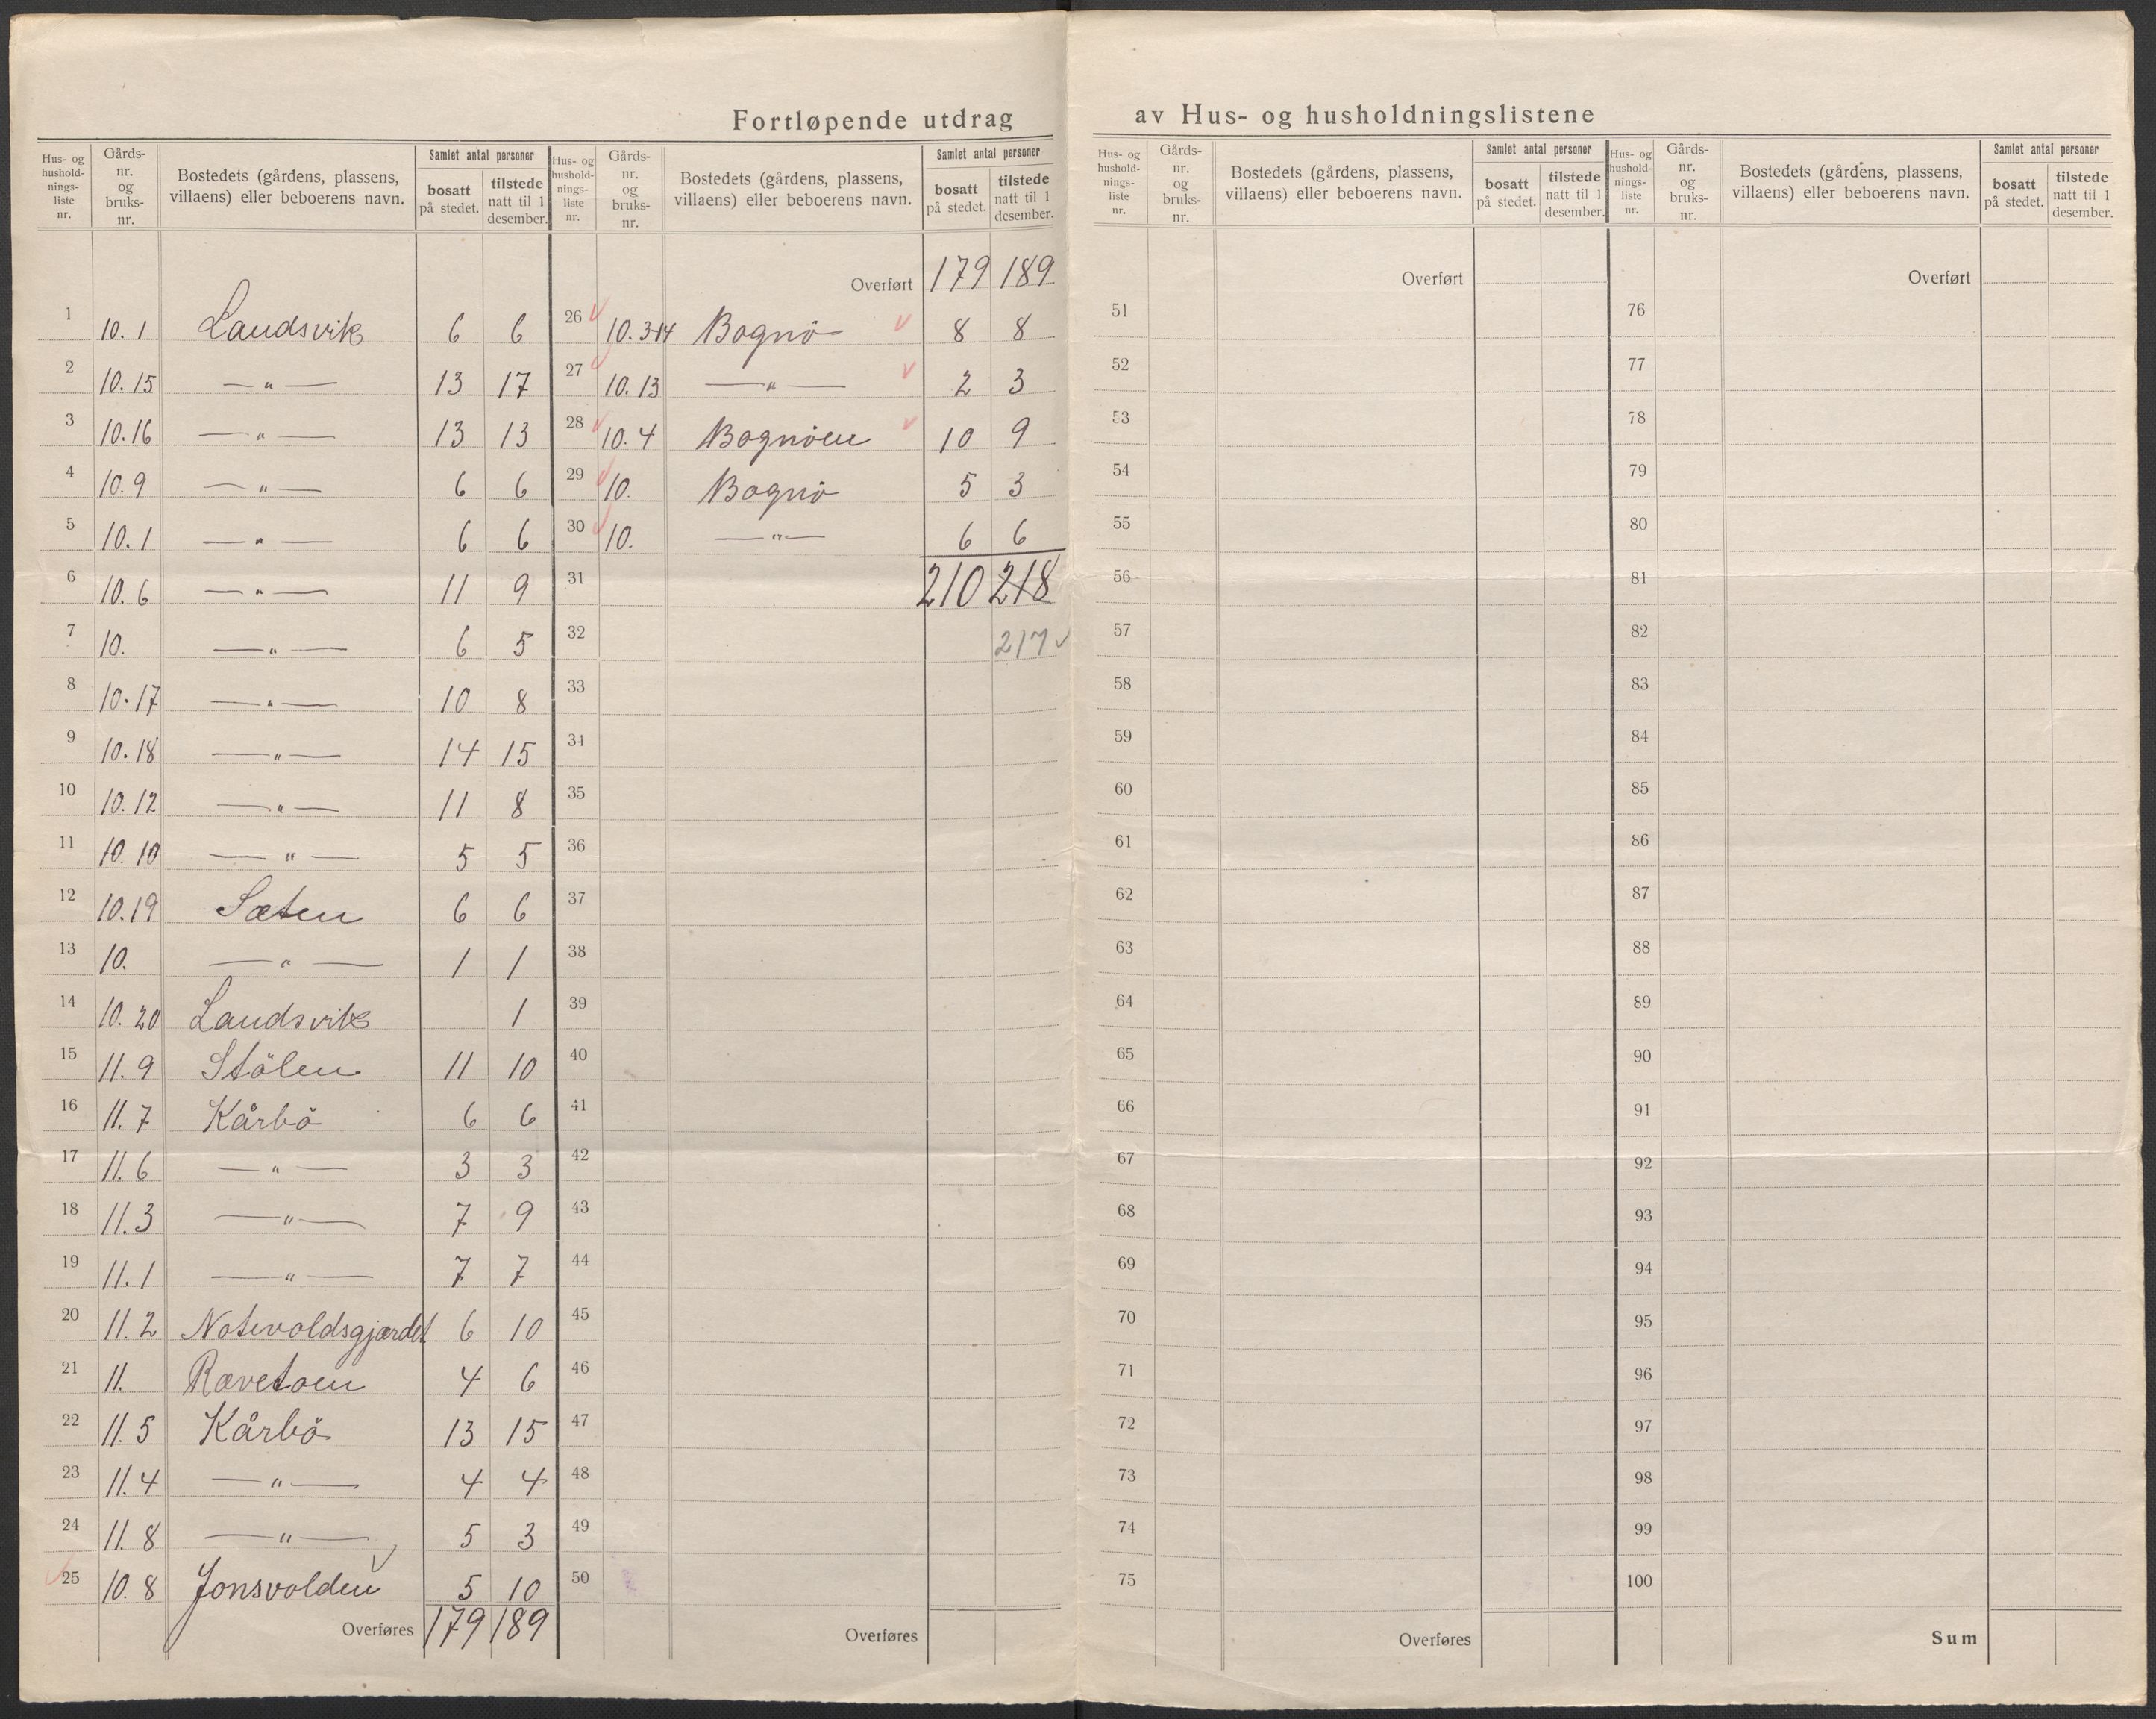 Fortløpende utdrag av Hus- og husholdningslistene
Hus- og hushold-nings-liste nr. Gårds-nr. og bruks-nr. Bostedets (gårdens, plassens, villaens) eller beboerens navn. Samlet antal personer bosatt på stedet. tilstede natt til 1 desember.
1 10.1 Landsvik 6 6
2 10.15 — " — 13 17
3 10.16 — " — 13 13
4 10.9 — " — 6 6
5 10.1 — " — 6 6
6 10.6 — " — 11 9
7 10. — " — 6 5
8 10.17 — " — 10 8
9 10.18 — " — 14 15
10 10.12 — " — 11 8
11 10.10 — " — 5 5
12 10.19 Sæten 6 6
13 10. — " — 1 1
14 10.20 Landsvik 1
15 11.9 Stölen 11 10
16 11.7 Kårbö 6 6
17 11.6 — " — 3 3
18 11.3 — " — 7 9
19 11.1 — " — 7 7
20 11.2 Notevoldsgjærdet 6 10
21 11. Rævetoen 4 6
22 11.5 Kårbö 13 15
23 11.4 — " — 4 4
24 11.8 — " — 5 3
25 10.8 Jonsvolden 5 10
Overføres 179 189
Hus- og hushold-nings-liste nr. Gårds-nr. og bruks-nr. Bostedets (gårdens, plassens, villaens) eller beboerens navn. Samlet antal personer bosatt på stedet. tilstede natt til 1 desember.
Overført 179 189
26 10.3-14 Bognö 8 8
27 10.13 — " — 2 3
28 10.4 Bognöen 10 9
29 10. Bognö 5 3
30 10. — " — 6 6
31 210 218
32 217
33
34
35
36
37
38
39
40
41
42
43
44
45
46
47
48
49
50
Overføres
Hus- og hushold-nings-liste nr. Gårds-nr. og bruks-nr. Bostedets (gårdens, plassens, villaens) eller beboerens navn. Samlet antal personer bosatt på stedet. tilstede natt til 1 desember.
Overført
51
52
53
54
55
56
57
58
59
60
61
62
63
64
65
66
67
68
69
70
71
72
73
74
75
Overføres
Hus- og hushold-nings-liste nr. Gårds-nr. og bruks-nr. Bostedets (gårdens, plassens, villaens) eller beboerens navn. Samlet antal personer bosatt på stedet. tilstede natt til 1 desember.
Overført
76
77
78
79
80
81
82
83
84
85
86
87
88
89
90
91
92
93
94
95
96
97
98
99
100
Sum